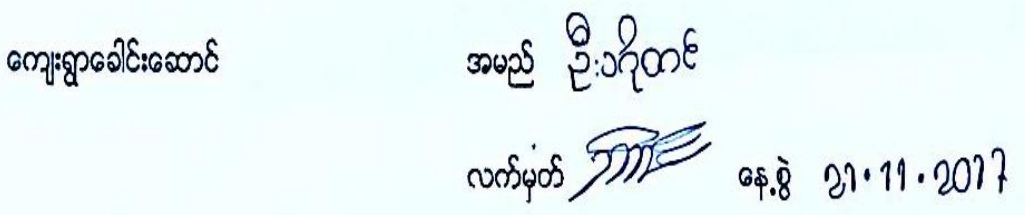 ကျေးရွာခေါင်းဆောင် အမည် ဦး
လက်မှတ် နေ့စွဲ 21.11.2017